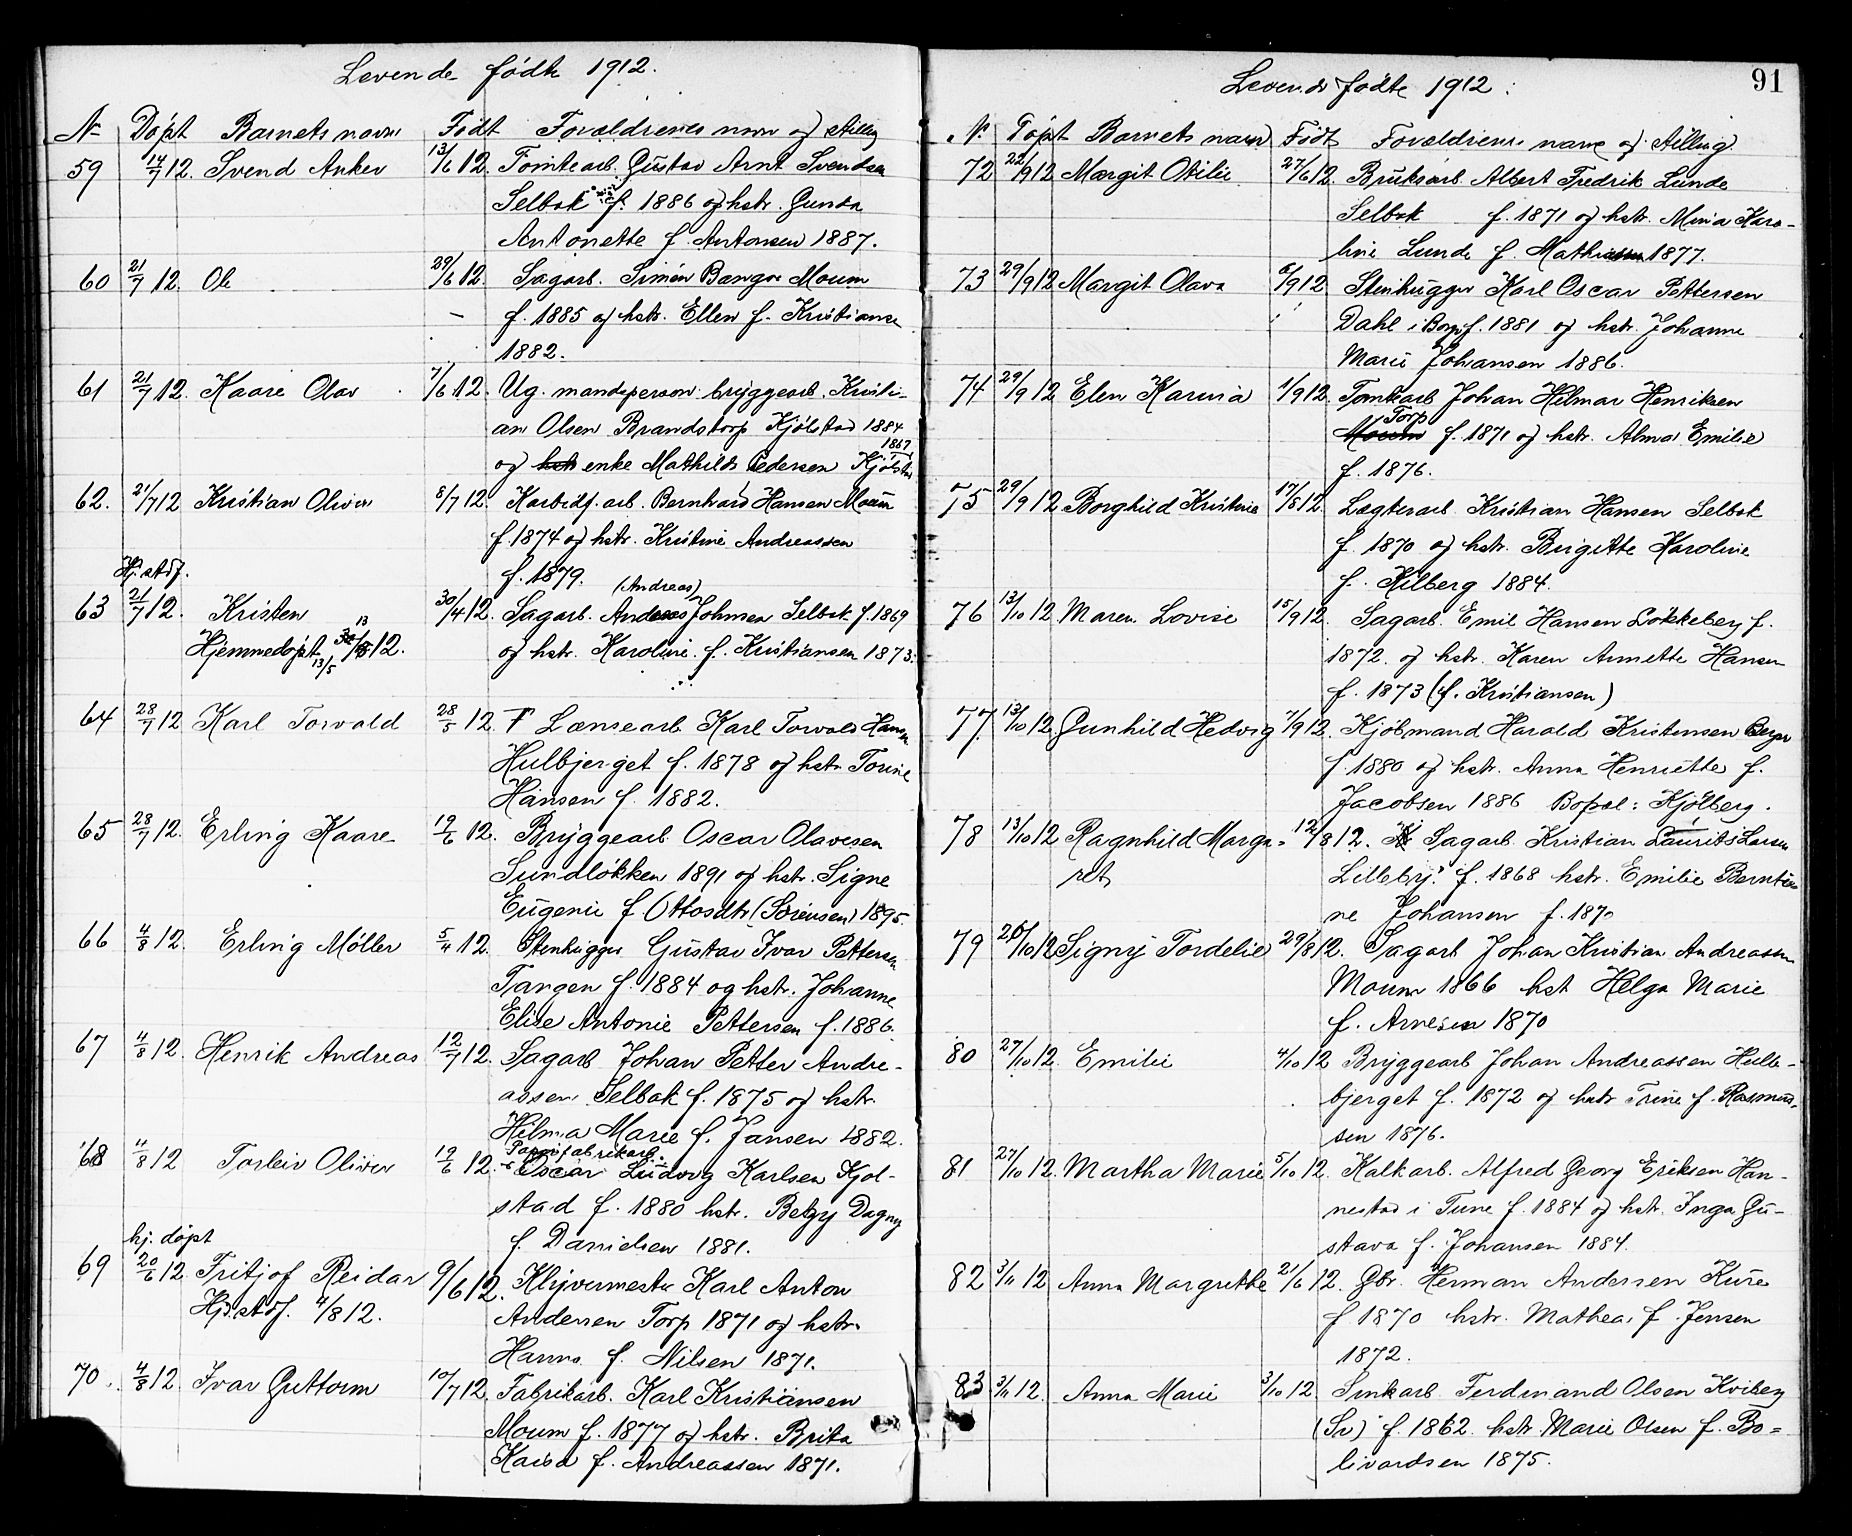 Levende fødte 1912.
No Døpt Barnets navn Født Forældrenes navn og stilling
59 14/7 12. Svend Anker 13/6 12. Tomtearb. Gustav Arnt Svendsen
Selbak f. 1886 og hstr. Gunda
Antonette f. Antonsen 1887.
60 21/7 12. Ole 29/6 12. Sagarb. Simon Bangor Moum
f. 1885 og hstr. Ellen f. Kristianse
1882.
61 21/7 12. Kaare Olav 7/6 12. Ug. mandsperson bryggearb. Kristi-
an Olsen Brandstorp Kjølstad 1884
og hstr enke Mathilde Pedersen Kjølstad 1867
62. 21/7 12 Kristian Oliver 8/7 12. Karbidf. arb. Bernhard Hansen Moum
f. 1874 og hstr. Kristine Andreassen
f. 1879.
Hj. stdf.
63 21/7 12. Kristen 30/4 12. Sagarb. Anders (Andreas) Johnsen Selbak f. 1869
Hjemmedøpt 13/5 12. og hstr. Karoline f. Kristiansen 1873.
13/5
64 28/7 12 Karl Torvald 28/5 12. Lænsearb. Karl Torvald Hansen
Hulbjerget f. 1878 og hstr. Torine
Hansen f. 1882.
65 28/7 12. Erling Kaare 19/6 12. Bryggearb. Oscar Olavesen
Sundløkken 1891 og hstr. Signe
Eugenie f. Ottosdtr (Sørensen) 1895.
66 4/8 12. Erling Møller 5/4 12. Stenhugger Gustav Ivar Pettersen
Tangen f. 1884 og hstr. Johanne
Elise Antonie Pettersen f. 1886.
67 4/8 12. Henrik Andreas 12/7 12. Sagarb Johan Petter Andre-
assen Selbak f. 1875 og hstr.
Helma Marie f. Jansen 1882.
Papirfabrikarb.
68 4/8 12 Torleiv Oliver 19/6 12. Oscar Ludvig Karlsen Kjøl-
stad f. 1880 hstr. Betzy Dagny
f. Danielsen 1881.
hj. døpt
69 20/6 12. Fritjof Reidar 9/6 12. Klyvermester Karl Anton
Hj. stdf. 4/8 12. Andersen Torp 1871 og hstr.
Hanna f. Nilsen 1871.
70. 4/8 12. Ivar Guttorm 10/7 12. Fabrikarb. Karl Kristiansen
Moum f. 1877 og hstr. Brita
Kaisa f. Andreassen 1871.
91
Levende fødte 1912.
No Døpt Barnets navn Født Forældrenes navn og stilling
72 22/9 12 Margit Otilie 27/6 12. Bruksarb. Albert Fredrik Lunde
Selbak f. 1871 og hstr. Mina Karo-
line Lunde f. Mathisen 1877.
73 29/9 12 Margit Olava 6/9 12. Stenhugger Karl Oscar Pettersen
Dahl i Borge f. 1881 og hstr. Johanne
Marie Johansen 1886.
74 29/9 12 Elen Karina 1/9 12. Tomtearb Johan Helmar Henriksen
Torp
Moum f. 1871 og hstr. Alma Emilie
f. 1876.
75 29/9 12 Borghild Kristine 17/8 12. Lægterarb. Kristian Hansen Selbak
f. 1870 og hstr. Birgitte Karoline
f. Kilberg 1884.
76 13/10 12 Maren Lovise 15/9 12. Sagarb. Emil Hansen Løkkeberg f.
1872. og hstr. Karen Annette Hansen
f. 1873 (f. Kristiansen)
77. 13/10 12 Gunhild Hedvig 7/9 12. Kjøbmand Harald Kristensen Berger
f. 1880 og hstr. Anna Henriette f.
Jacobsen 1886 Bopæl: Kjølberg.
78 13/10 12 Ragnhild Marga- 12/8 12. Sagarb. Kristian Laurits Larsen
ret Lilleby f. 1868 hstr. Emilie Bernti-
ne Johansen f. 1870
79 20/10 12 Signy Tordelie 29/8 12. Sagarb Johan Kristian Andreassen
Moum 1866 hst Helga Marie
f. Arnesen 1870
80 27/10 12. Emilie 4/10 12 Bryggearb Johan Andreassen Hulle-
bjerget f. 1872 og hstr Trine f. Rasmus-
sen 1876.
81 27/10 12. Martha Marie 5/10 12. Kalkarb. Alfred Georg Eriksen Han-
nestad i Tune f. 1884 og hstr. Inga Gu-
stava f. Johansen 1884.
82 3/11 12 Anna Margrethe 21/6 12. Gbr. Herman Andersen Kure
f 1870 hstr. Mathea f. Jensen
1872.
83 3/11 12. Anna Marie 3/10 12. Smikarb Ferdinand Olsen Kviberg
(Sv) f. 1862. hstr. Marie Olsen f. Bo-
livardsen 1875.